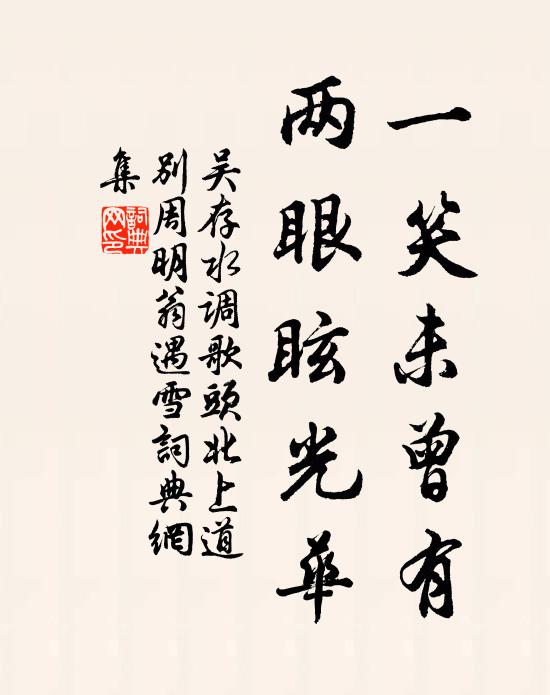 一笑未曾有
两眼眩光华
吴存水调歌頭北上道
别周明翁遇雪詞典網
集
詞典
网印